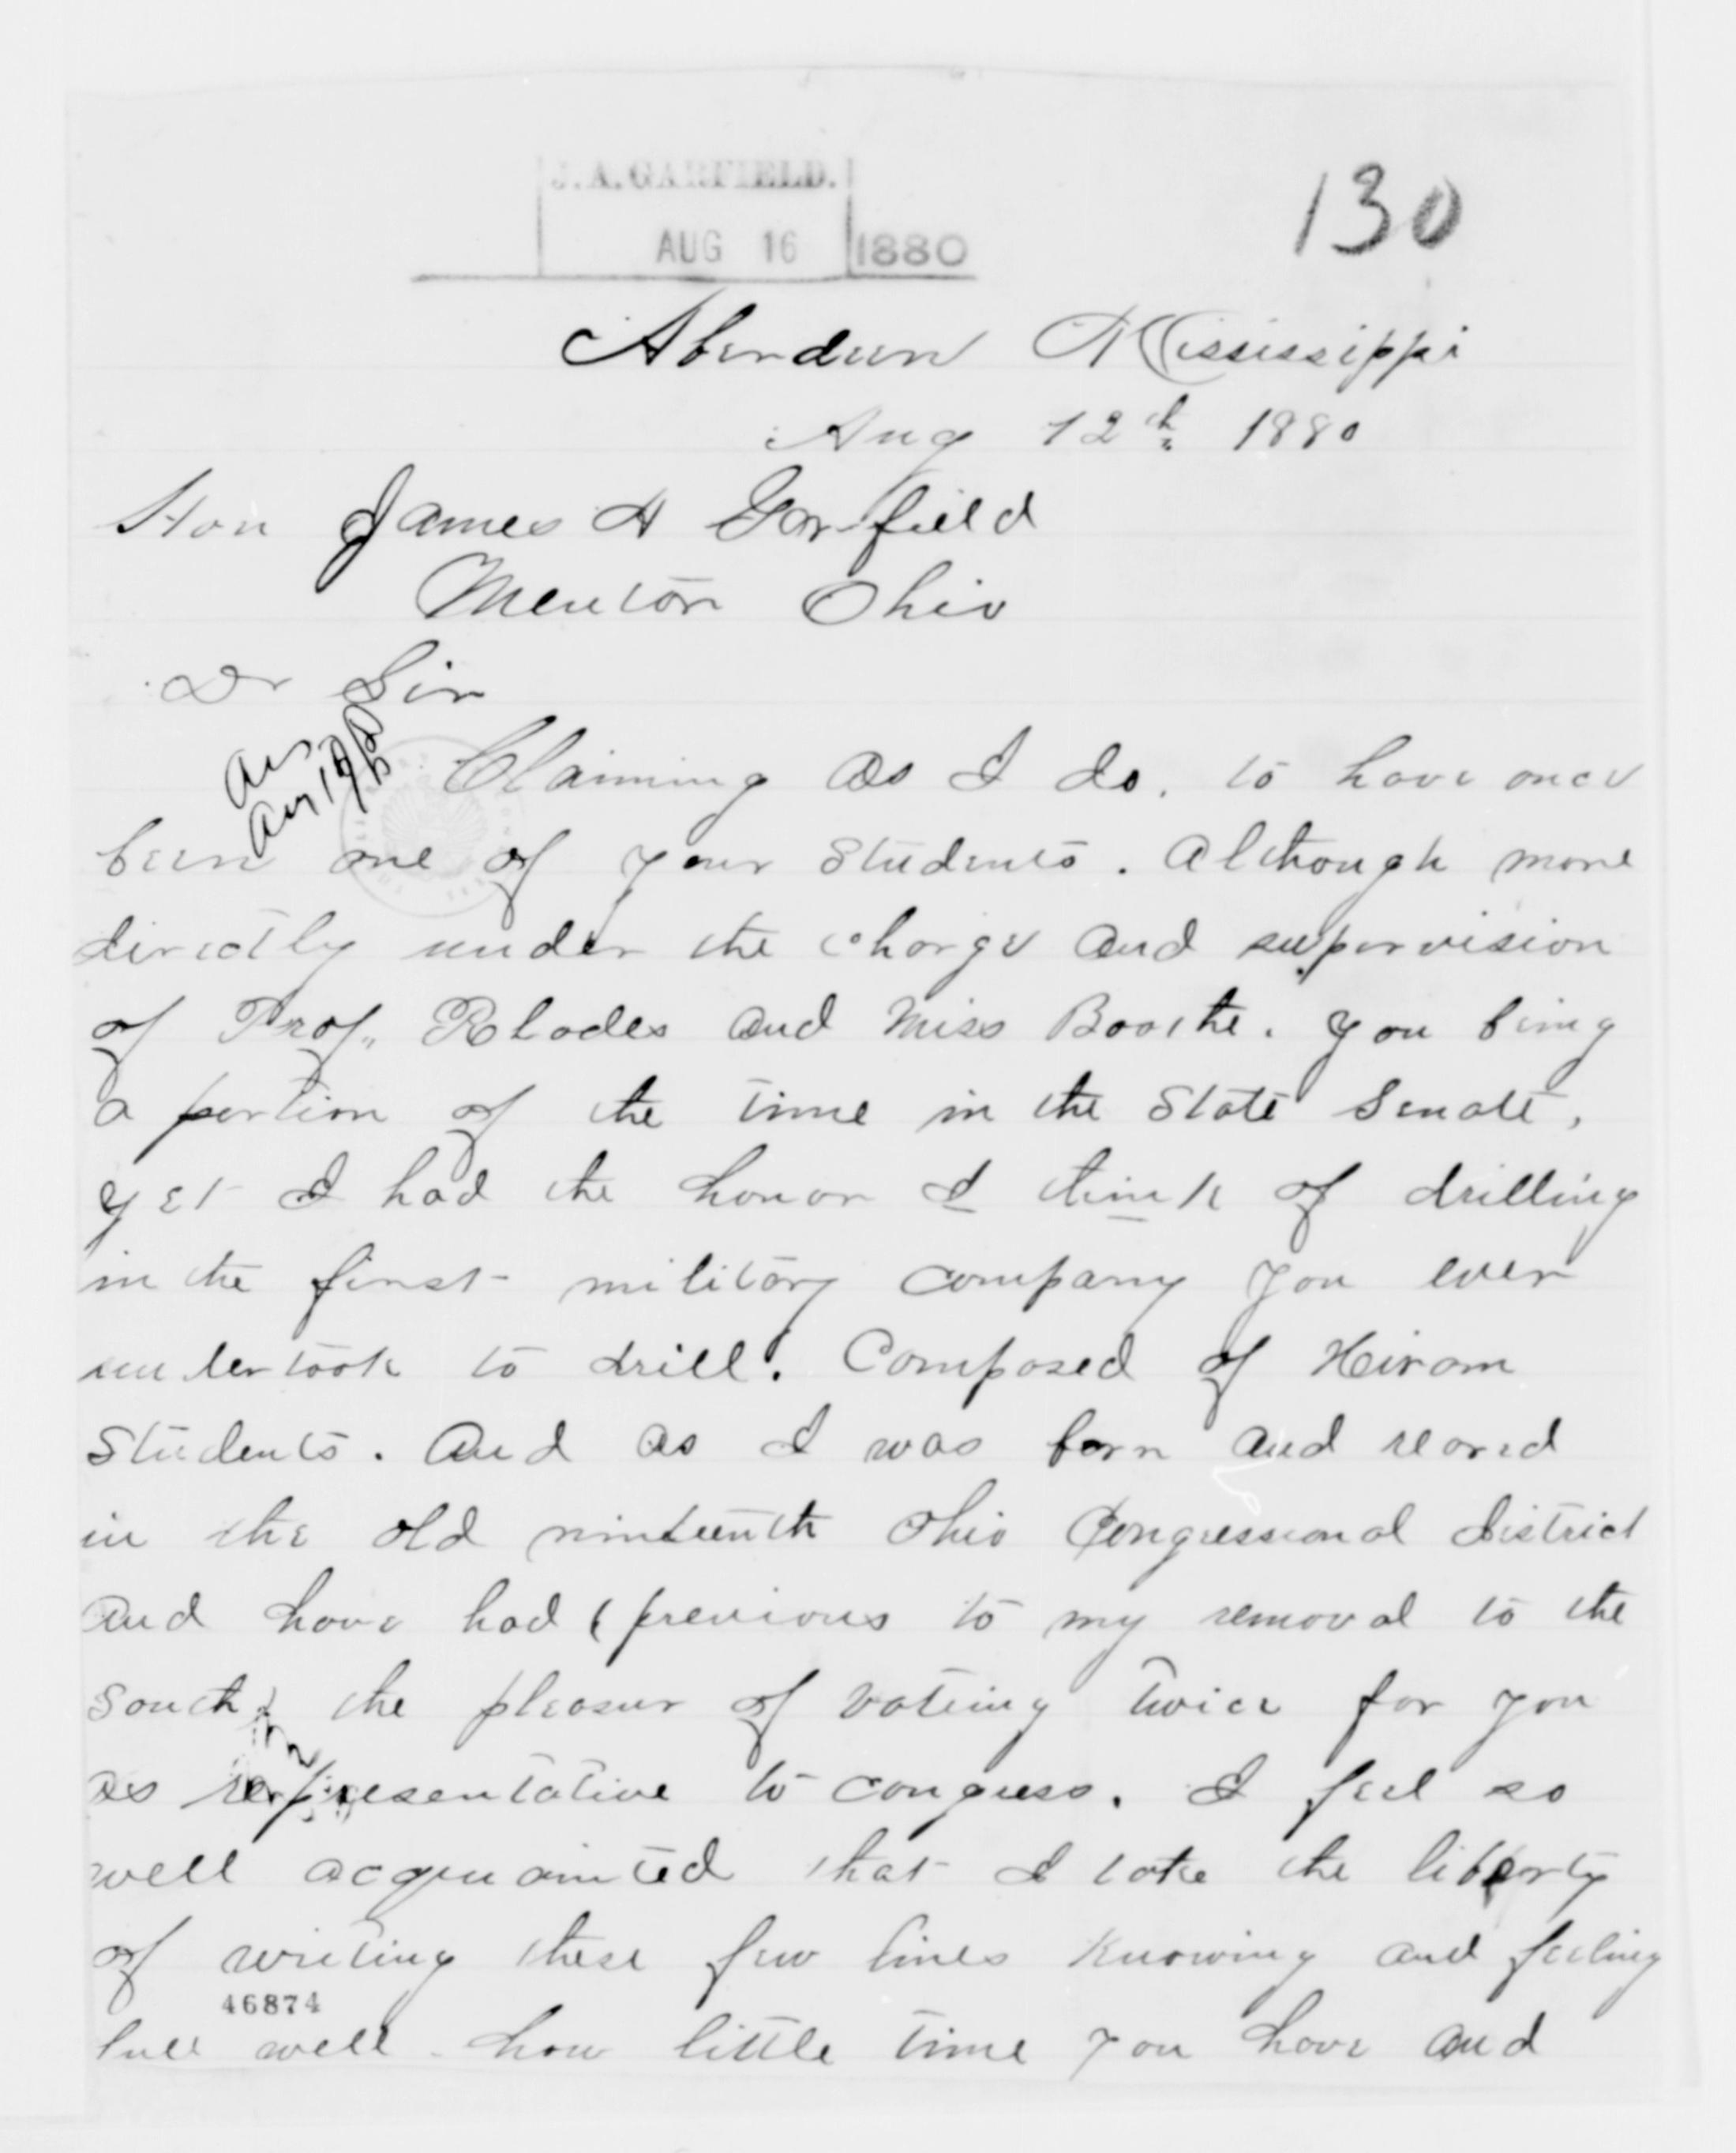 J.A. GARFIELD.
AUG 16 1880
130
Aberdeen Mississippi
Aug 12th 1880
Hon James A Garfield
Mentor Ohio
Dr Sir
Ans
Aug 19/80
Claiming as I do, to have once
been one of your students. Although more
directly under the charge and supervision
of Prof,, Rhodes and Miss Boothe. you being
a portion of the time in the State Senate,
yet I had the honor I think of drilling
in the first military company you ever
undertook to drill. Composed of Hiram
Students. And as I was born and reared
in the old ninteenth Ohio Congressional district
and have had (previous to my removal to the
South) the pleasur of voting twice for you
as representative to congress. I feel so
well acquainted that I take the liberty
of writing these few lines knowing and feeling
46874
full well how little time you have and